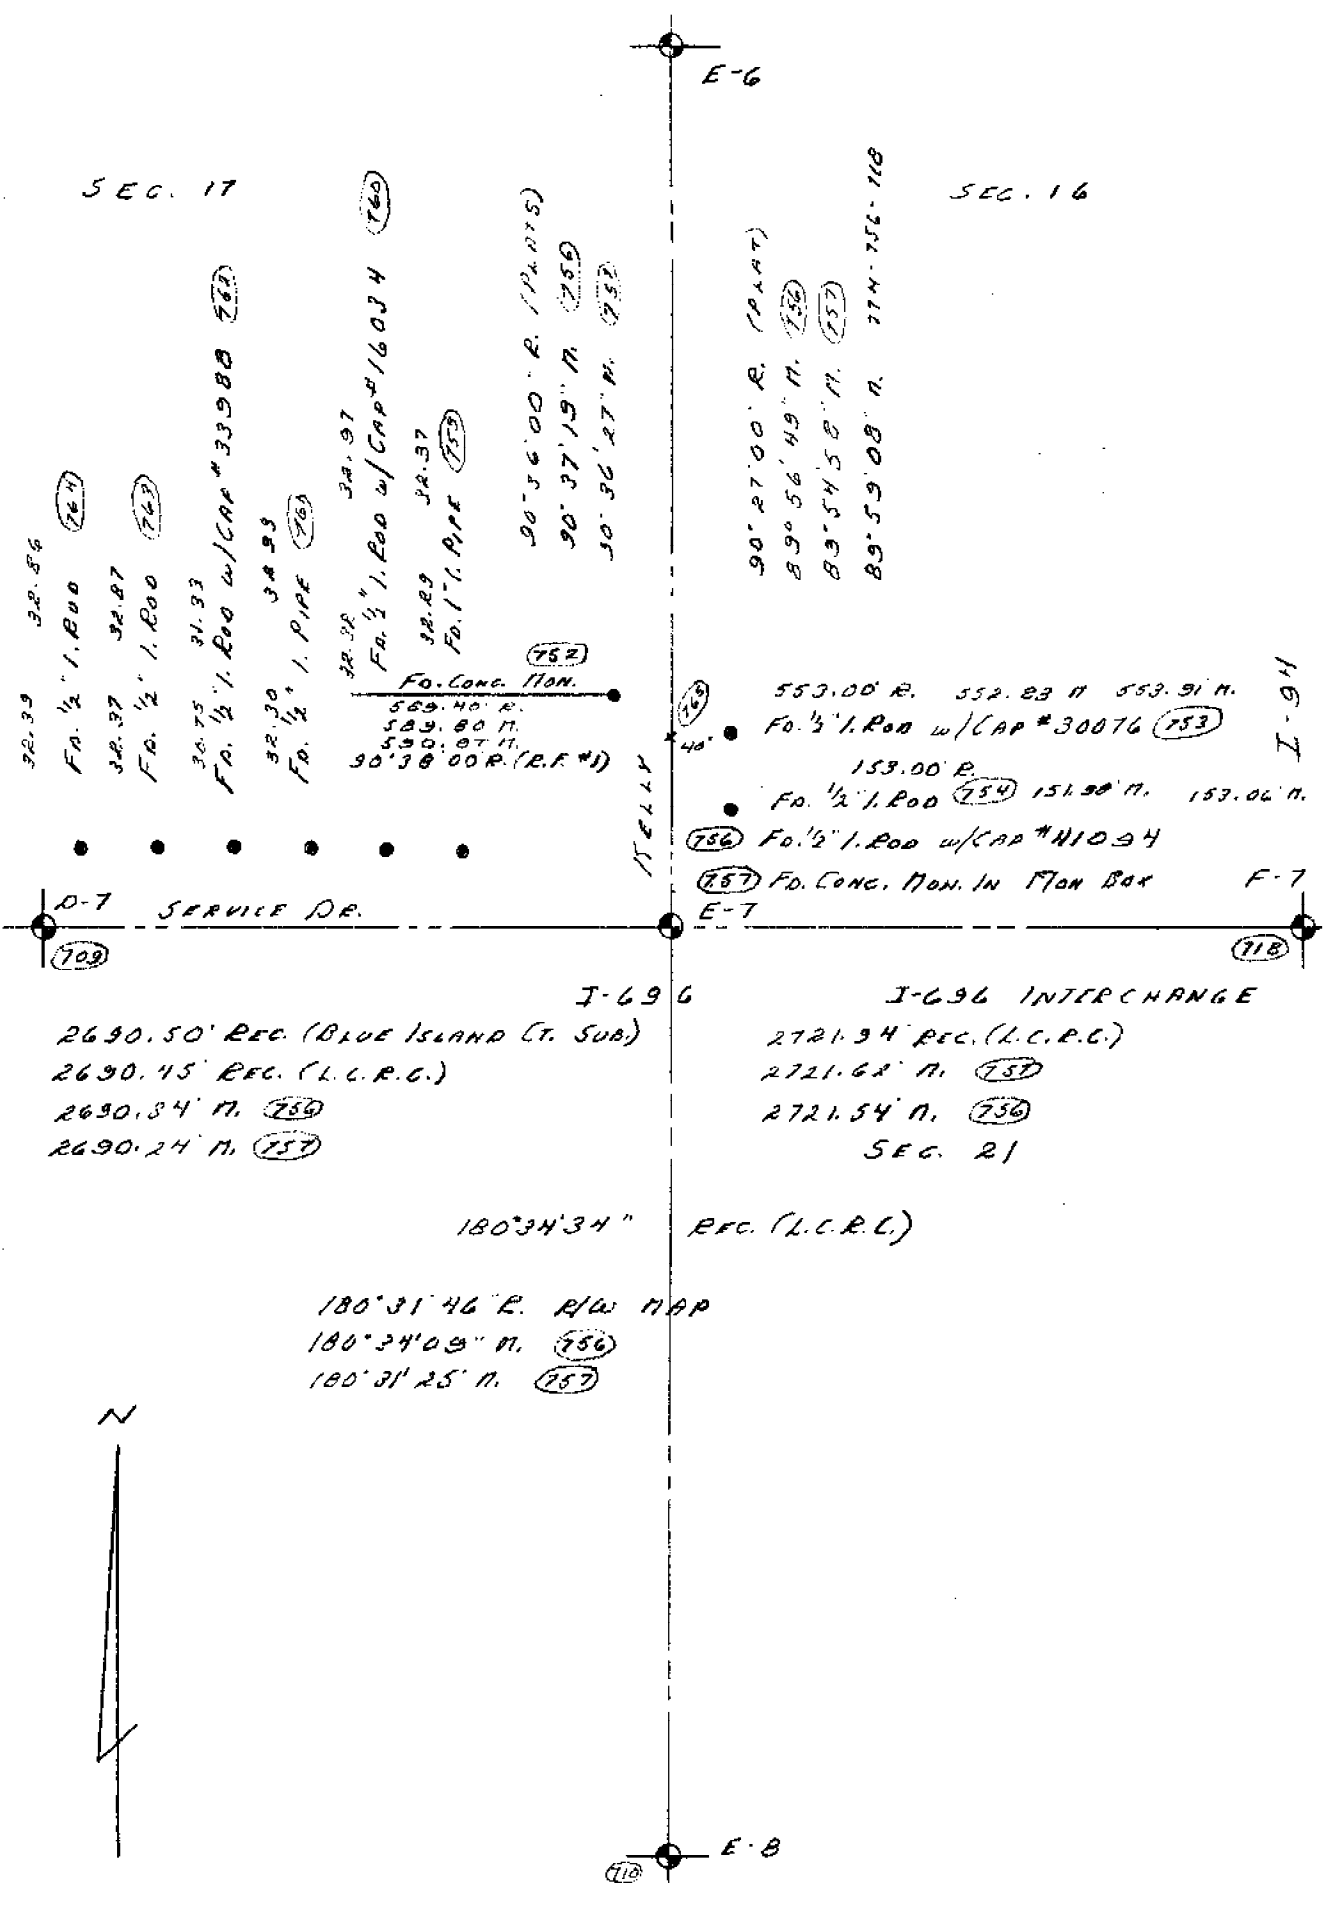 E-6
SEC. 17
SEC. 16
32.39 32.86
FD. 1/2" I. ROD 764
32.37 32.87
FD. 1/2" I. ROD 763
30.75 31.33
FD. 1/2" I. ROD W/CAP #33988 762
32.30 32.93
FD. 1/2" I. PIPE
32.32 32.97
FD. 1/2" I. ROD W/CAP #16034 760
32.29 32.37
FD. 1" I. PIPE 759
90°36'00" R. (PLATS)
90°37'19" M. 756
90°36'27" M. 757
90°27'00" R. (PLAT)
89°56'49" M. 756
89°54'58" M. 757
89°59'08" M. 774-756-718
752
FD. CONC. MON.
589.80 M.
590.07 M.
90°38'00" R. (R.F. #1)
KELLY
765
40'
553.00' R. 552.83 M 553.91 M.
FD. 1/2" I. ROD W/CAP #30076 753
153.00' R.
FD. 1/2" I. ROD 754 151.98' M. 153.06' M.
756 FD. 1/2" I. ROD W/CAP #41094
757 FD. CONC. MON. IN MON BOX
I-94
F-7
D-7 SERVICE DR.
E-7
709
718
I-696
I-696 INTERCHANGE
2690.50' REC. (BLUE ISLAND CT. SUB.)
2690.45' REC. (L.C.R.C.)
2690.34' M. 756
2690.24' M. 757
2721.94' REC. (L.C.R.C.)
2721.62' M. 757
2721.54' M. 756
SEC. 21
180°34'34" REC. (L.C.R.C.)
180°31'46" R. R/W MAP
180°34'09" M. 756
180°31'25" M. 757
N
E-8
710